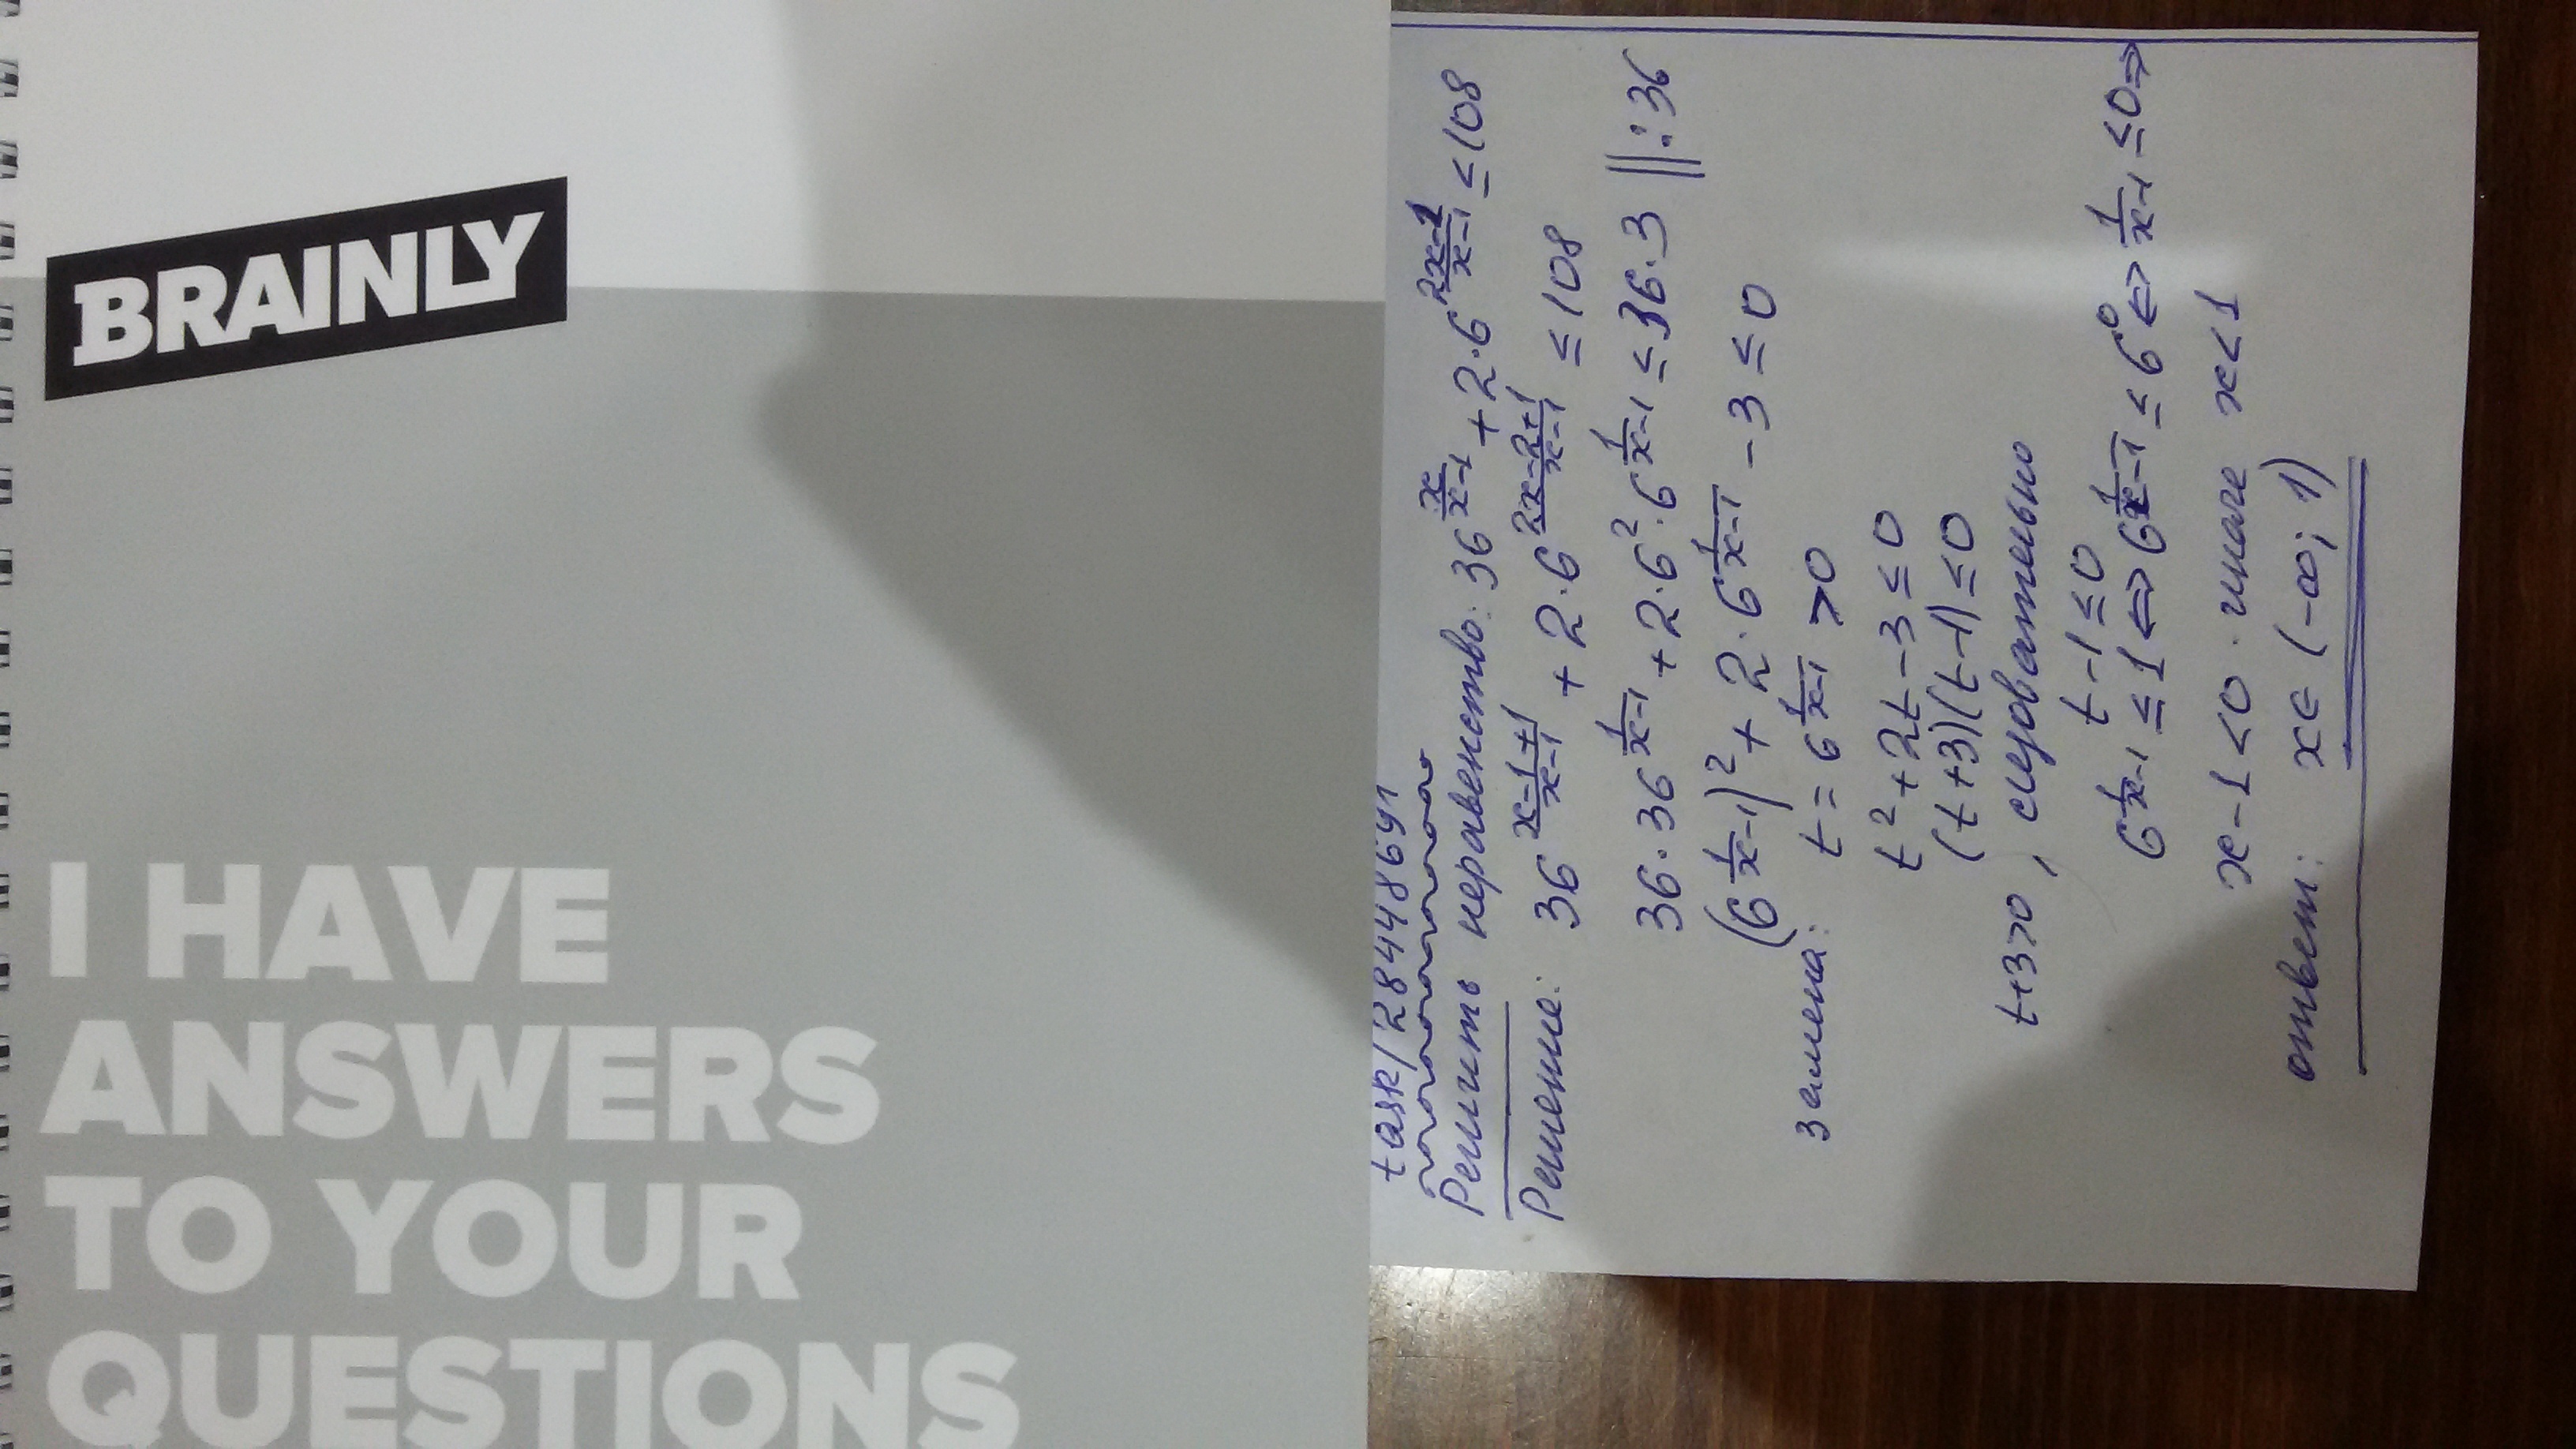 BRAINLY
I HAVE
ANSWERS
TO YOUR
QUESTIONS
task/28448691
Решить неравенство: 36^(x/(x-1)) + 2·6^((2x-1)/(x-1)) ≤ 108
Решение: 36^((x-1+1)/(x-1)) + 2·6^((2x-2+1)/(x-1)) ≤ 108
36·36^(1/(x-1)) + 2·6^2·6^(1/(x-1)) ≤ 36·3 ||:36
(6^(1/(x-1)))^2 + 2·6^(1/(x-1)) -3 ≤ 0
замена: t = 6^(1/(x-1)) >0
t^2+2t-3 ≤ 0
(t+3)(t-1) ≤ 0
t+3>0, следовательно
t-1 ≤ 0
6^(1/(x-1)) ≤ 1 ⇔ 6^(1/(x-1)) ≤ 6^0 ⇔ 1/(x-1) ≤ 0 ⇒
x-1<0. иначе x<1
ответ: x∈(-∞; 1)